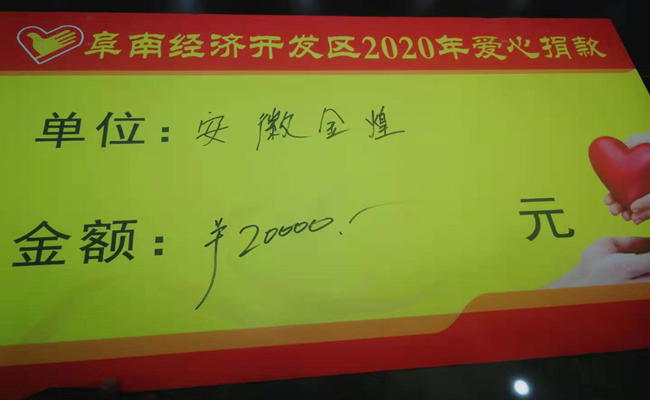 阜南经济开发区2020年爱心捐款
单位：安徽金煌
金额：¥20000.- 元